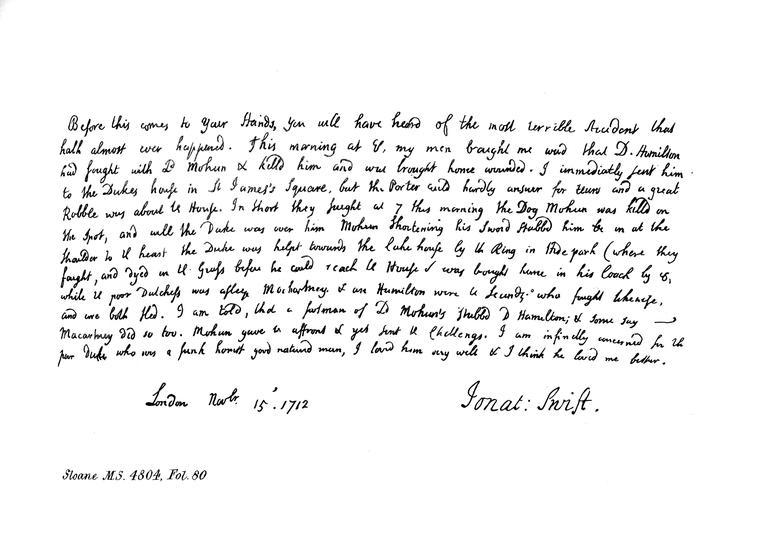 Before this comes to Your Hands, you will have heard of the most terrible Accident that
hath almost ever happened. This morning at 8, my man brought me word that D. Hamilton
had fought with Ld Mohun & killd him and was brought home wounded. I immediately sent him
to the Dukes house in St James's Square, but the Porter could hardly answer for tears and a great
Rabble was about the House. In short they fought at 7 this morning the Dog Mohun was killd on
the spot, and while the Duke was over him Mohun shortening his Sword stabbd him in at the
shoulder to the heart the Duke was helpt towards the lake house by the Ring in Hide park (where they
fought, and dyed on the Grass before he could reach the House & was brought home in his Coach by 8,
while the poor Dutchess was asleep Mackartney & an Hamilton were the Seconds who fought likewise,
and are both fled. I am told, that a footman of Ld Mohun's stabbd D Hamilton; & some say
Macartney did so too. Mohun gave the affront & yet sent the Challenge. I am infinitly concerned for the
poor Duke who was a frank honest good natured man, I loved him very well & I think he loved me better.
London Novbr 15. 1712
Jonat: Swift.
Sloane M.S. 4804, Fol. 80